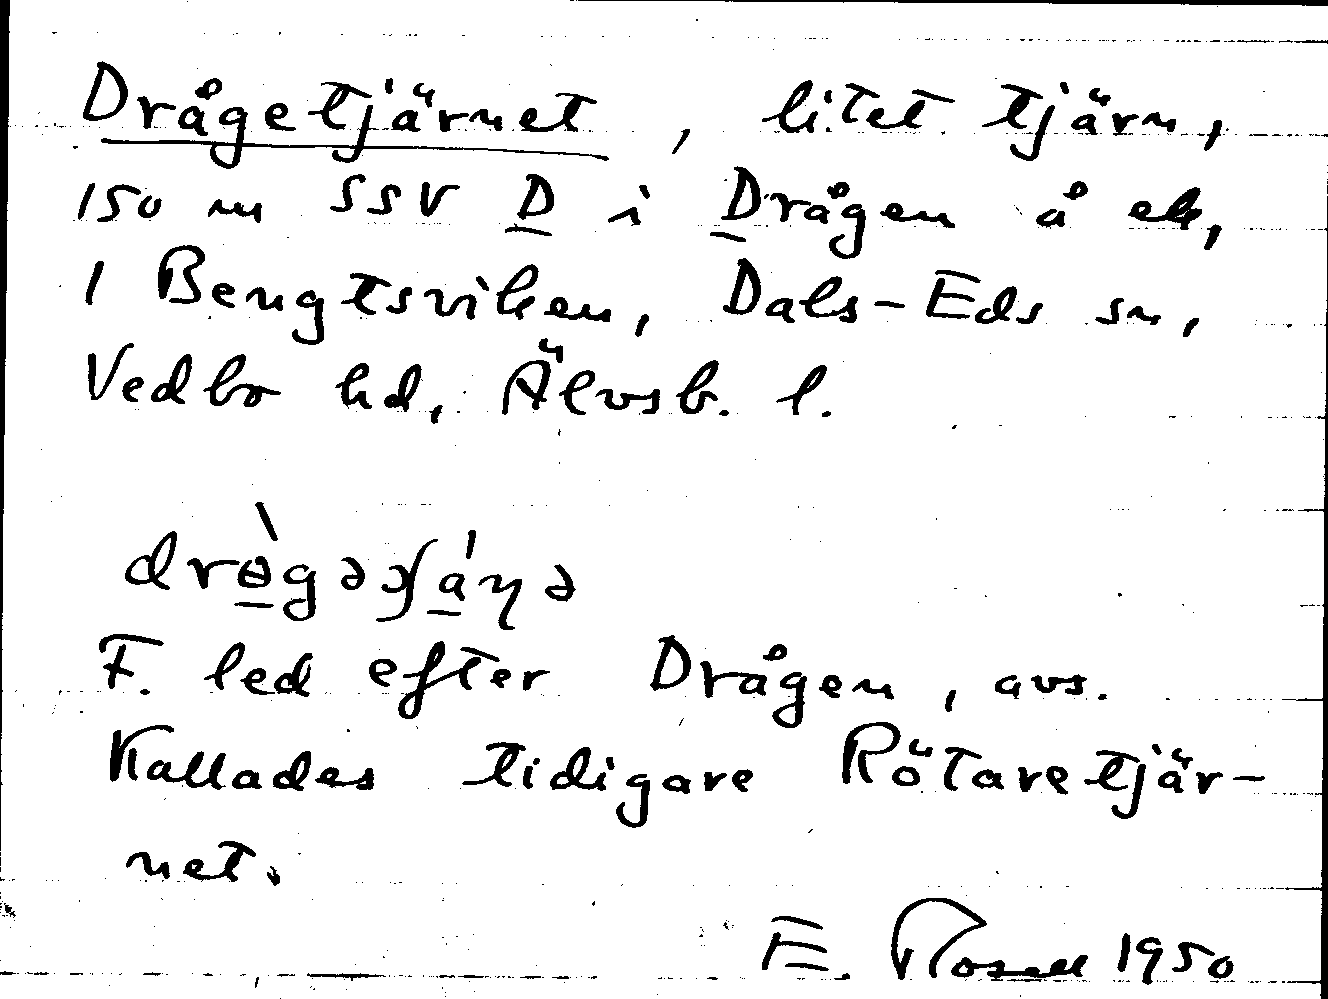 Drågetjärnet, litet tjärn,
150 m SSV D i Drågen å ek,
1 Bengtsviken, Dals-Eds sn,
Vedbo hd, Älvsb. l.
F. led efter Drågen, avs.
Kallades tidigare Rötaretjär-
net.
E. Rosell 1950